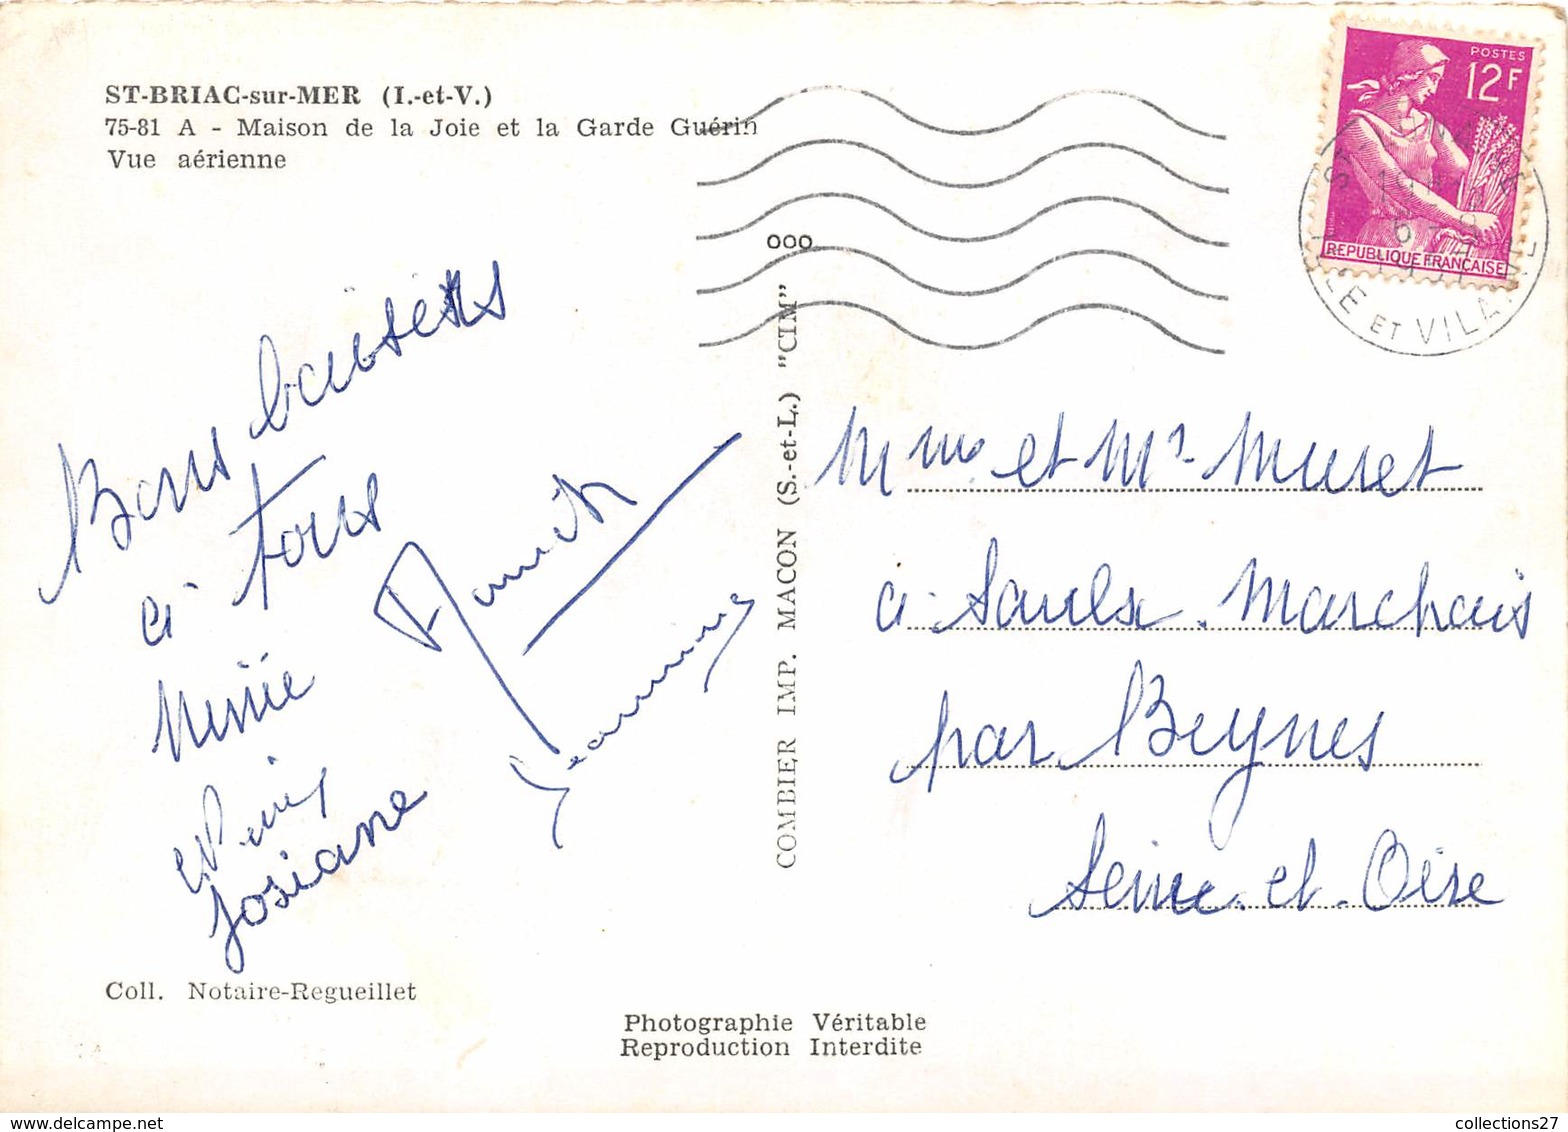 ST-BRIAC-sur-MER (I.-et-V.)
75-81 A - Maison de la Joie et la Garde Guérin
Vue aérienne
POSTES
12F
REPUBLIQUE FRANÇAISE
ET VILAINE
Bons baisers
à tous
Josiane
Mme et Mr Muret
à Saulx-Marchais
par Beynes
Seine-et-Oise
COMBIER IMP. MACON (S.-et-L.) "CIM"
Coll. Notaire-Regueillet
Photographie Véritable
Reproduction Interdite
collections27